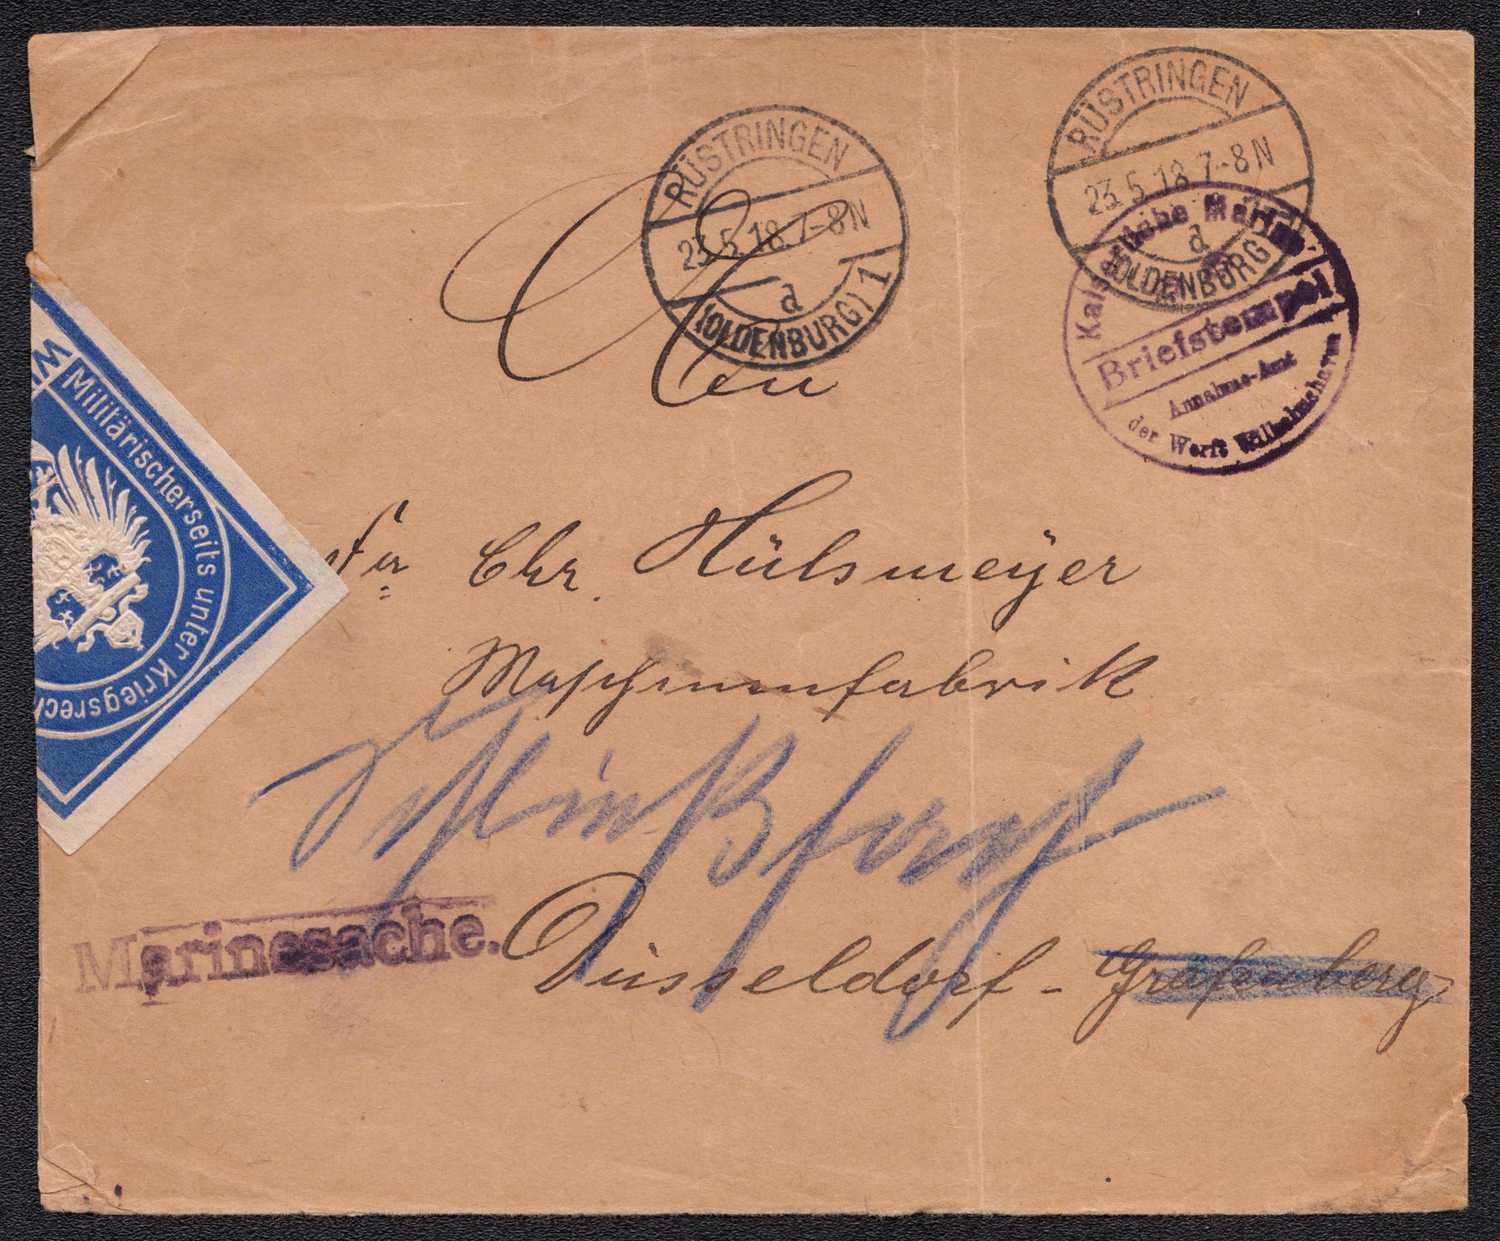 RÜSTRINGEN
23.5.18.7-8N
a
(OLDENBURG) 1
RÜSTRINGEN
23.5.18.7-8N
a
(OLDENBURG)
Kaiserliche Marine
Briefstempel
Annahme-Amt
der Werft Wilhelmshaven
An
Militärischerseits unter Kriegsrech
Fa Chr. Hülsmeyer
Maschinenfabrik
Marinesache.
Düsseldorf-Grafenberg